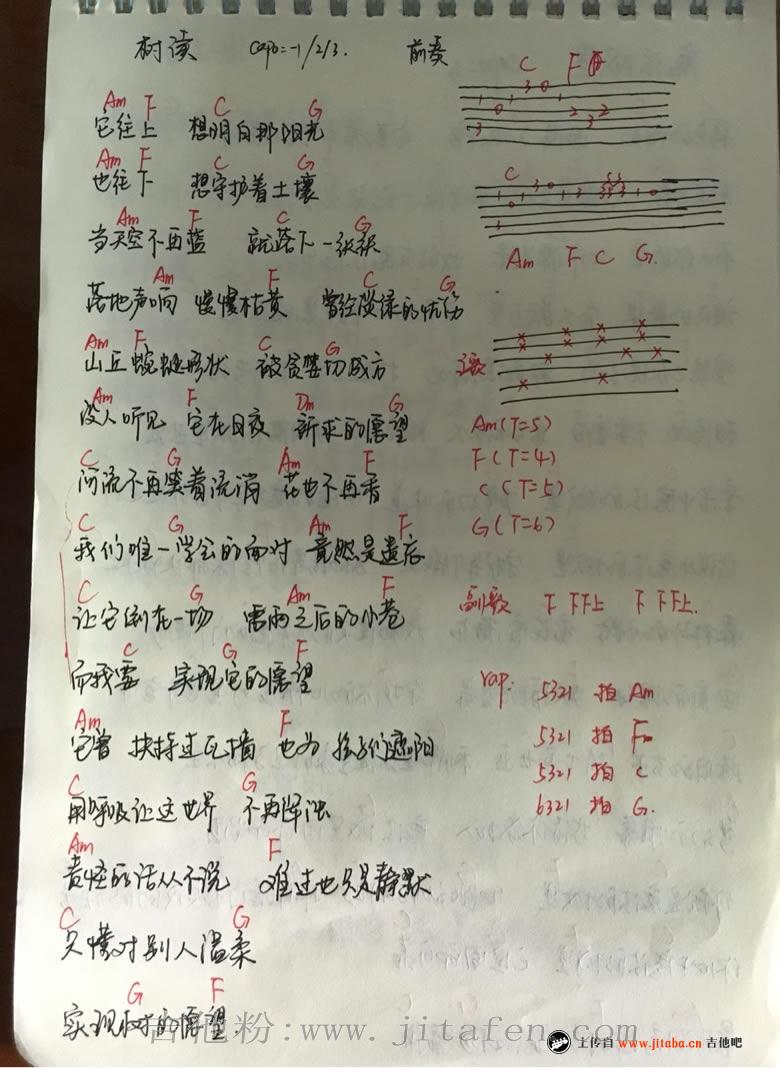 树读 capo=-1/2/3. 前奏
C F
Am F C G
它往上 想明白那阳光
Am F C G
也往下 想守护着土壤
C
Am F C G
当天空不再蓝 就落下一张张
Am F C G.
Am F C G
落地声响 慢慢枯黄 曾经淡绿的忧伤
Am F C G
山丘蜿蜒形状 被贪婪切成方
主歌
Am F Dm G
没人听见 它在日夜 祈求的愿望
Am(T=5)
F(T=4)
C G Am F
河流不再笑着流淌 花也不再香
C(T=5)
G(T=6)
C G Am F
我们唯一学会的面对 竟然是遗忘
C G Am F
让它倒在一场 雷雨之后的小巷
副歌 下 下下上 下 下下上.
C G F
而我要 实现它的愿望
rap: 5321 拍 Am
Am F
它曾 扶持过瓦墙 也为 孩子们遮阳
5321 拍 F
5321 拍 C
C G
用呼吸让这世界 不再浑浊
6321 拍 G.
Am F
责怪的话从不说 难过也只是静默
C G
只懂对别人温柔
G F
实现树的愿望
吉他粉:www.jitafen.com
上传自 www.jitaba.cn 吉他吧